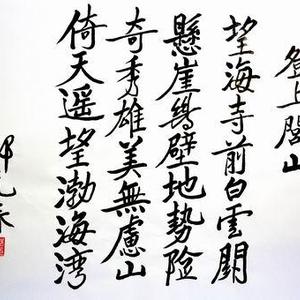 登上閭山
望海寺前白雲開
懸崖絕壁地勢险
奇秀雄美無慮山
倚天遥望渤海湾